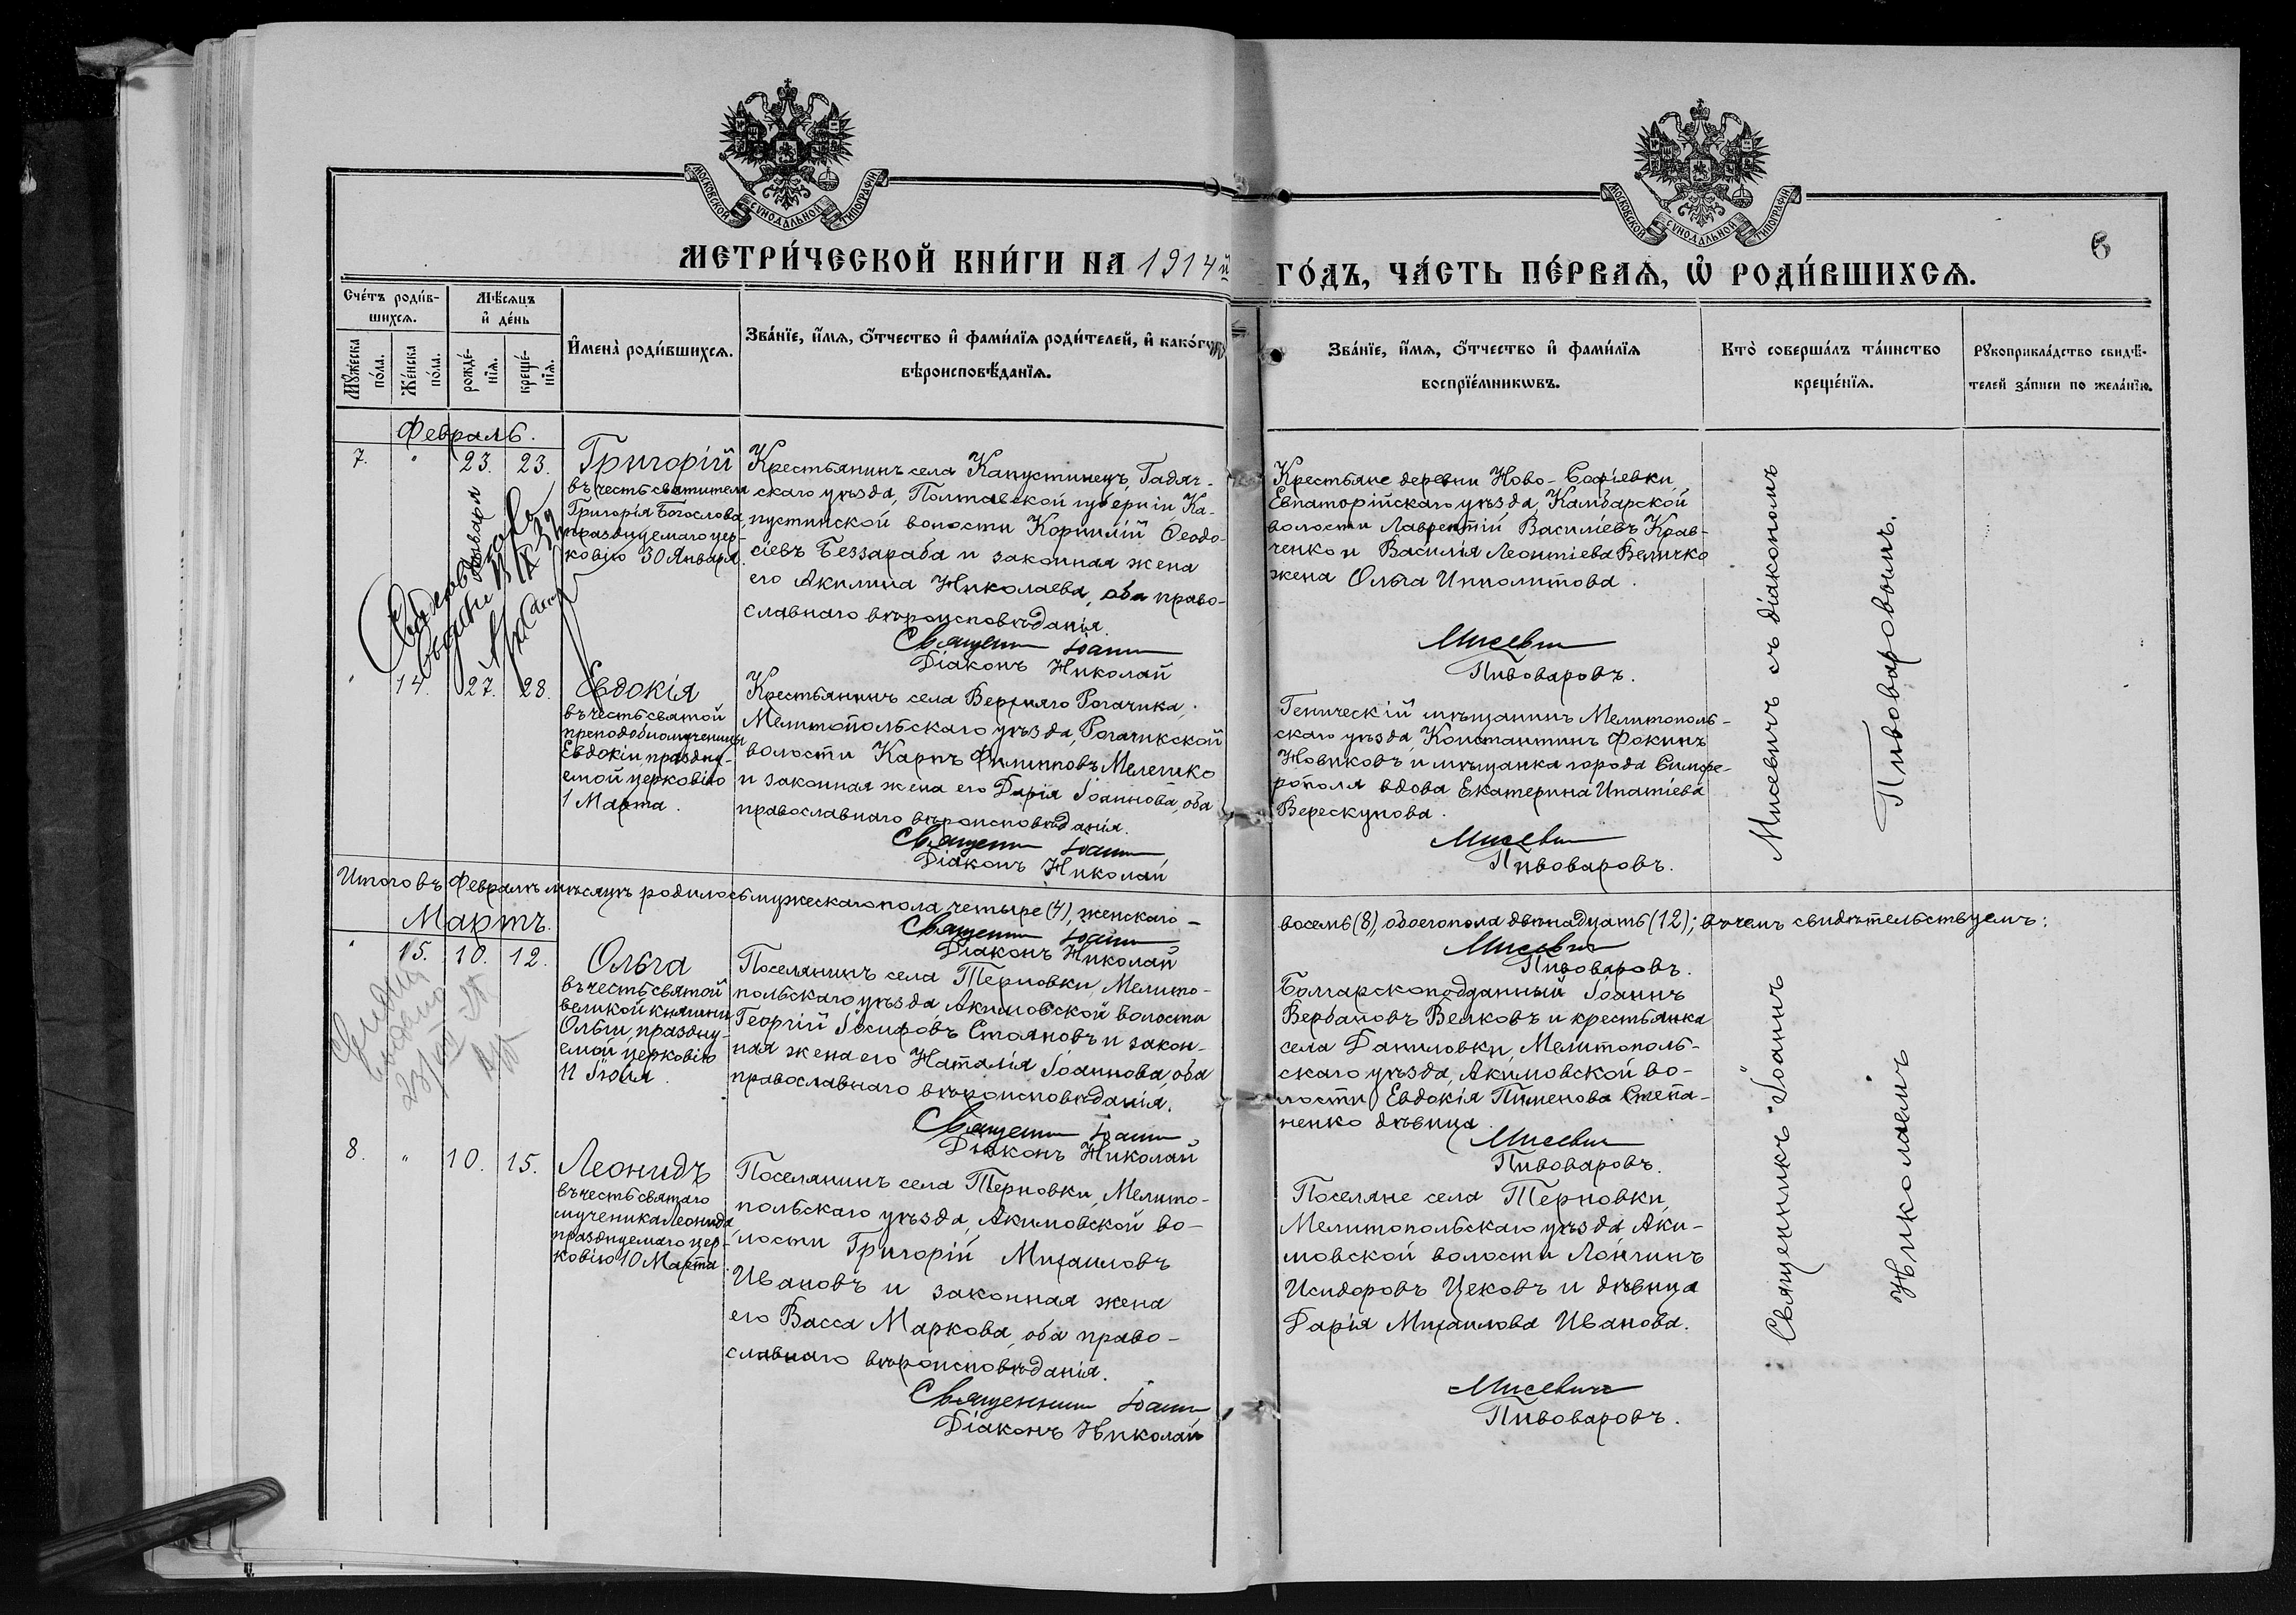 МОСКОВСКОЙ СѴНОДАЛЬНОЙ ТИПОГРАФІИ
МОСКОВСКОЙ СѴНОДАЛЬНОЙ ТИПОГРАФІИ
6
МЕТРИ́ЧЕСКОЙ КНИ́ГИ НА 1914й ГО́ДЪ, ЧА́СТЬ ПЕ́РВАѦ, Ѡ҆ РОДИ́ВШИХСѦ.
Счéтъ роди́в-
шихсѧ.
Мꙋ́жеска
по́ла.
Же́нска
по́ла.
Мѣ́сѧцъ
и҆ де́нь
рожде́-
нїѧ.
креще́-
нїѧ.
И҆мена̀ роди́вшихсѧ.
Зва́нїе, и҆́мѧ, ѻ҆́тчество и҆ фами́лїѧ роди́телей, и҆ како́гѡ
вѣроисповѣ́данїѧ.
Зва́нїе, и҆́мѧ, ѻ҆́тчество и҆ фами́лїѧ
воспрїе́мникѡвъ.
Кто̀ соверша́лъ та́инство
креще́нїѧ.
Рꙋкоприкла́дство свидѣ́-
телей за́писи по жела́нїю.
Февраль.
7. " 23. 23.
Григорій
въ честь святителя
Григорія Богослова,
празднуемаго цер-
ковію 30 Января.
Крестьянинъ села Капустинецъ, Гадяч-
скаго уѣзда, Полтавской губерніи Ка-
пустинской волости Корнилій Ѳеодо-
сіевъ Беззараба и законная жена
его Акилина Николаева, оба право-
славнаго вѣроисповѣданія.
Священн Іоанн
Діаконъ Николай
Крестьяне деревни Ново-Софіевки,
Евпаторійскаго уѣзда, Камбарской
волости Лаврентій Василіевъ Крав-
ченко и Василія Леонтіева Величко
жена Ольга Ипполитова.
Мисевич
Пивоваровъ.
" 14. 27. 28.
Евдокія
въ честь святой
преподобномученицы
Евдокіи праздну-
емой церковію
1 Марта.
Крестьянинъ села Верхняго Рогачика,
Мелитопольскаго уѣзда, Рогачикской
волости Карпъ Филипповъ Мелешко
и законная жена его Дарія Іоаннова, оба
православнаго вѣроисповѣданія.
Священн Іоанн
Діаконъ Николай
Геническій мѣщанинъ Мелитополь-
скаго уѣзда, Константинъ Фокинъ
Новиковъ и мѣщанка города Симфе-
рополя вдова Екатерина Ипатіева
Верескунова.
Мисевич
Пивоваровъ.
Мисевичъ съ діакономъ
Пивоваровымъ.
Итого въ Февралѣ мѣсяцѣ родилось мужескаго пола четыре (4), женскаго -
восемь (8), обоего пола двѣнадцать (12); въ чемъ свидѣтельствуемъ:
Священн Іоанн
Діаконъ Николай
Мисевич
Пивоваровъ.
Мартъ.
" 15. 10. 12.
Ольга
въ честь святой
великой княгини
Ольги, праздну-
емой церковію
11 Іюля.
Поселянинъ села Терновки, Мелито-
польскаго уѣзда, Акимовской волости
Георгій Іосифовъ Стояновъ и закон-
ная жена его Наталія Іоаннова, оба
православнаго вѣроисповѣданія.
Священн Іоанн
Діаконъ Николай
Болгарскоподданный Іоаннъ
Вербановъ Велковъ и крестьянка
села Даниловки, Мелитополь-
скаго уѣзда, Акимовской во-
лости Евдокія Пименова Степа-
ненко дѣвица.
Мисевич
Пивоваровъ.
8. " 10. 15.
Леонидъ
въ честь святаго
мученика Леонида
празднуемаго цер-
ковію 10 Марта.
Поселянинъ села Терновки, Мелито-
польскаго уѣзда, Акимовской во-
лости Григорій Михаиловъ
Ивановъ и законная жена
его Васса Маркова, оба право-
славнаго вѣроисповѣданія.
Священник Іоанн
Діаконъ Николай
Поселяне села Терновки,
Мелитопольскаго уѣзда Аки-
мовской волости Лонгинъ
Исидоровъ Цековъ и дѣвица
Дарія Михаилова Иванова.
Мисевичъ
Пивоваровъ.
Священникъ Іоаннъ
Николаемъ